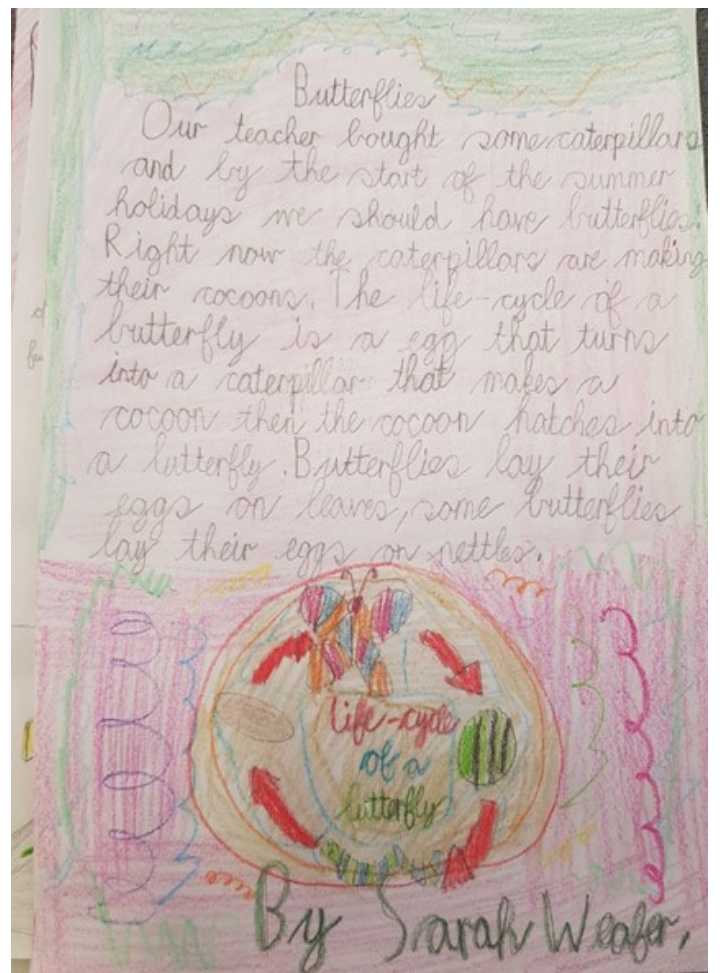 Butterflies
Our teacher bought some caterpillars
and by the start of the summer
holidays we should have butterflies.
Right now the caterpillars are making
their cocoons. The life-cycle of a
butterfly is a egg that turns
into a caterpillar that makes a
cocoon then the cocoon hatches into
a butterfly. Butterflies lay their
eggs on leaves, some butterflies
lay their eggs on nettles.
life-cycle
of a
butterfly
By Sarah Weafer.